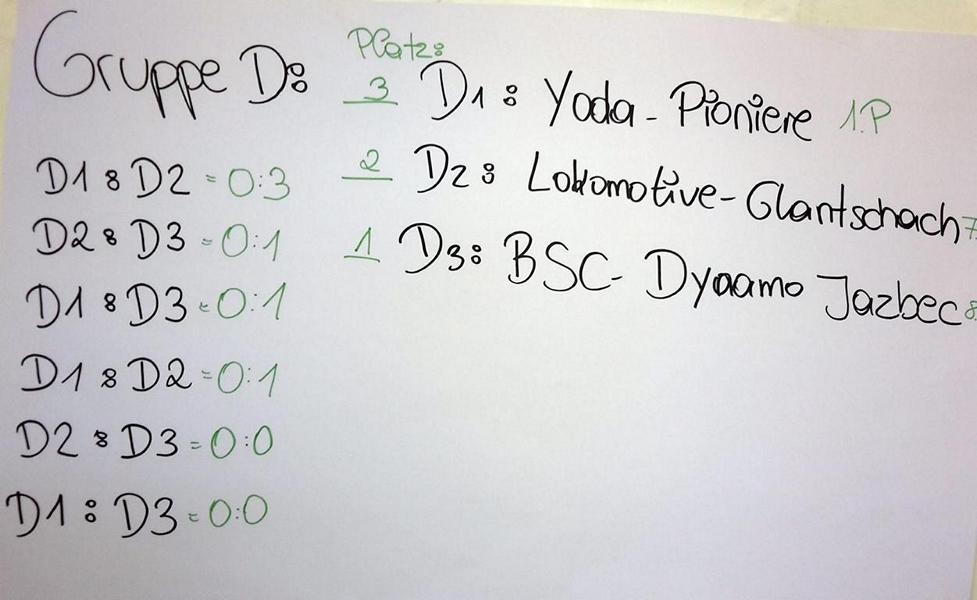 Gruppe D:
Platz:
3 D1: Yoda-Pioniere 1.P
2 D2: Lokomotive-Glantschach 7
1 D3: BSC-Dyaamo Jazbec 8
D1 : D2 = 0:3
D2 : D3 = 0:1
D1 : D3 = 0:1
D1 : D2 = 0:1
D2 : D3 = 0:0
D1 : D3 = 0:0